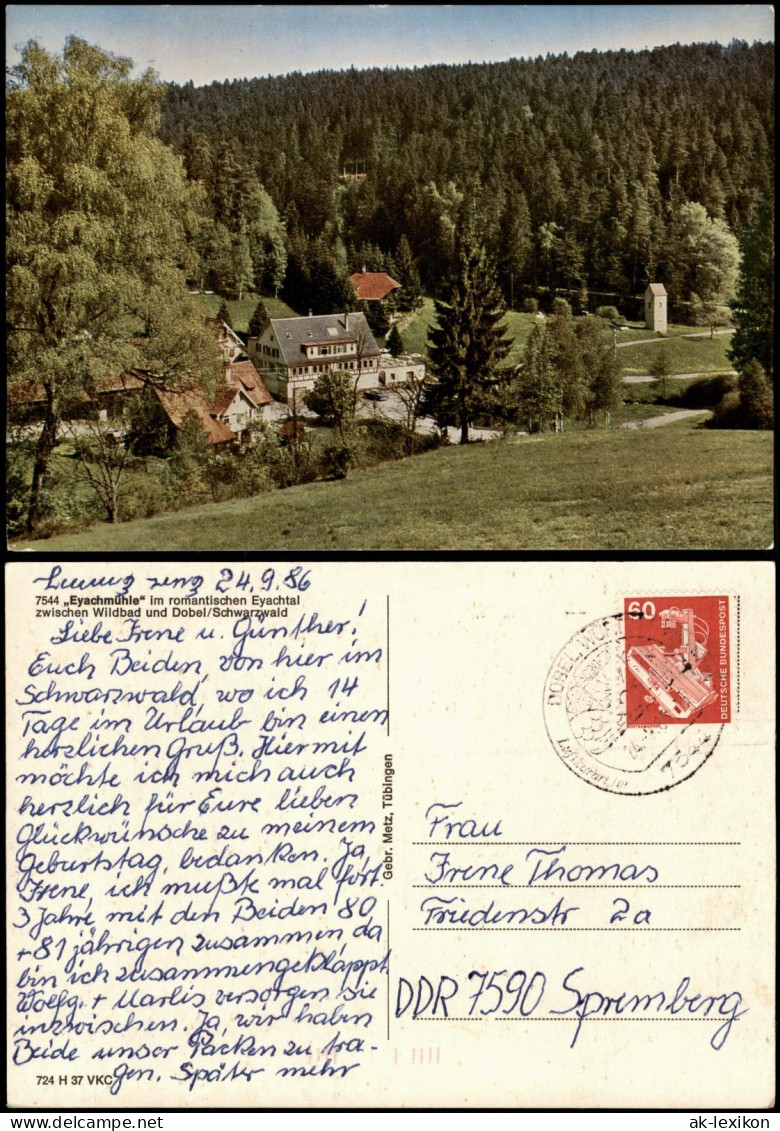 24.9.86
7544 „Eyachmühle" im romantischen Eyachtal
zwischen Wildbad und Dobel/Schwarzwald
Liebe Irene u. Günther!
Euch Beiden, von hier im
Schwarzwald, wo ich 14
Tage im Urlaub bin einen
herzlichen Gruß. Hiermit
möchte ich mich auch
herzlich für Eure lieben
Glückwünsche zu meinem
Geburtstag, bedanken. Ja,
Irene, ich mußte mal fort.
3 Jahre, mit den Beiden 80
+ 81 jährigen zusammen, da
bin ich zusammengeklappt.
Wolfg. + Marlis versorgen sie
inzwischen. Ja, wir haben
Beide unser Packen zu tra-
gen. Später mehr
724 H 37 VKC
Gebr. Metz, Tübingen
60
DEUTSCHE BUNDESPOST
DOBEL, WÜ
Luftkurort im
7544
Frau
Irene Thomas
Friedenstr 2a
DDR 7590 Spremberg
ak-lexikon.de